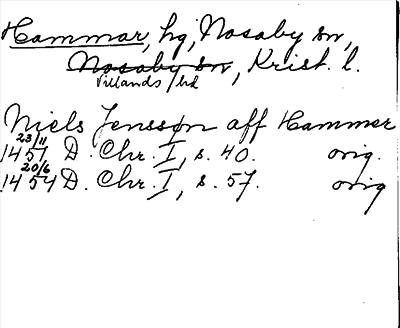 Hammar, hg, Nosaby sn,
Nosaby sn, Krist. l.
Villands hd
Niels Jenssøn aff Hammer
23/11
1451 D. Chr. I, s. 40. orig.
20/6
1454 D. Chr. I, s. 57. orig